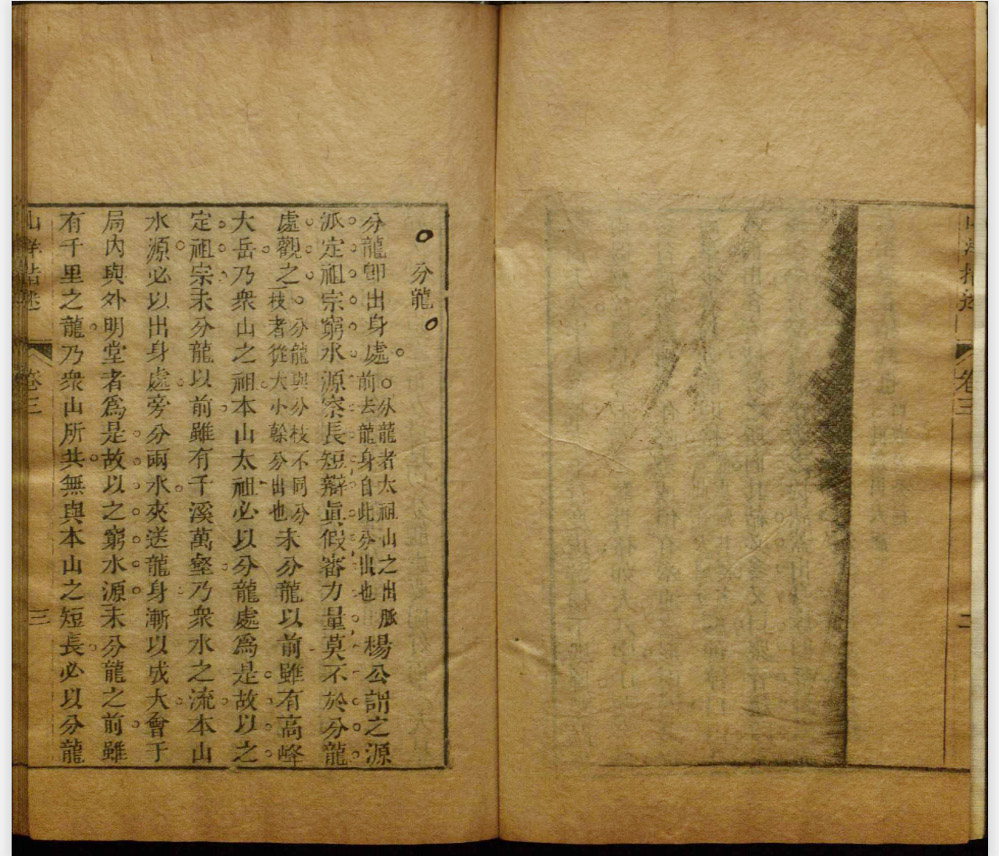 卷三
分龍
分龍卽出身處分龍者太祖山之出脈前去龍身自此分出也楊公謂之源
派定祖宗窮水源察長短辯眞假審力量莫不於分龍
處觀之分龍與分枝不同分枝者從大小榦分出也未分龍以前雖有高峰
大岳乃衆山之祖本山太祖必以分龍處爲是故以之
定祖宗未分龍以前雖有千溪萬壑乃衆水之流本山
水源必以出身處旁分兩水夾送龍身漸以成大會于
局內與外明堂者爲是故以之窮水源未分龍之前雖
有千里之龍乃衆山所共無與本山之短長必以分龍
卷三
三